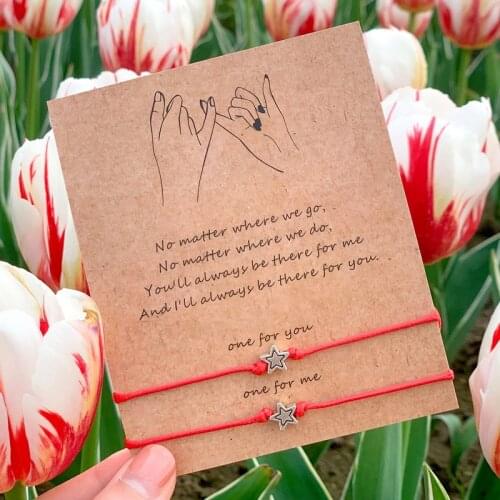 No matter where we go,
No matter where we do,
You'll always be there for me
And I'll always be there for you.
one for you
one for me